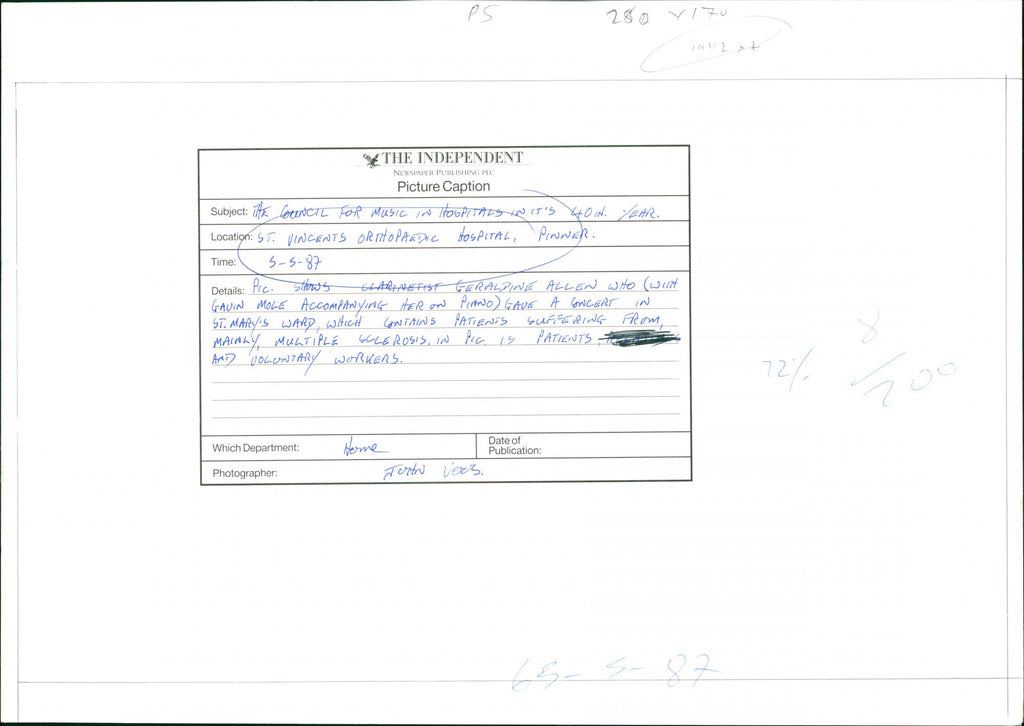 P5 280 x 170
THE INDEPENDENT
NEWSPAPER PUBLISHING PLC
Picture Caption
Subject: THE COUNCIL FOR MUSIC IN HOSPITALS IN IT'S 40TH. YEAR.
Location: ST. VINCENTS ORTHOPAEDIC HOSPITAL, PINNER.
Time: 5-5-87
Details: PIC. SHOWS CLARINETIST GERALDINE ALLEN WHO (WITH
GAVIN MOLE ACCOMPANYING HER ON PIANO) GAVE A CONCERT IN
ST. MARY'S WARD, WHICH CONTAINS PATIENTS SUFFERING FROM,
MAINLY, MULTIPLE SCLEROSIS. IN PIC IS PATIENTS,
AND VOLUNTARY WORKERS.
8
72%
/200
Which Department: Home
Date of
Publication:
Photographer: JOHN VOOS.
5-87